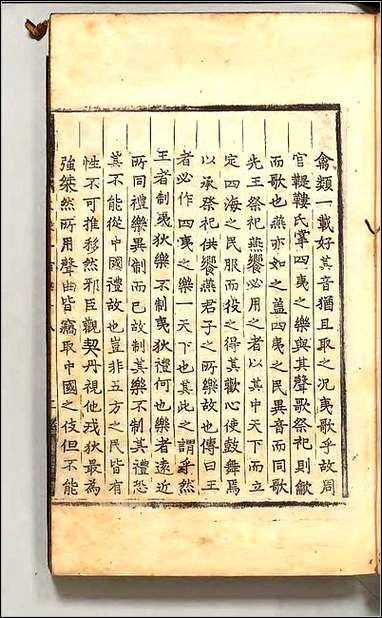 禽類一載好其音猶且取之况夷歌乎故周
官鞮鞻氏掌四夷之樂與其聲歌祭祀則龡
而歌也燕亦如之蓋四夷之民異音而同歌
先王祭祀燕饗必用之者以其中天下而立
定四海之民服而役之得其歡心使鼓舞焉
以承祭祀供饗燕君子之所樂故也傳曰王
者必作四夷之樂一天下也其此之謂乎然
王者制夷狄樂不制夷狄禮何也樂者遠近
所同禮樂異制而已故制其樂不制其禮恐
其不能從中國禮故也豈非五方之民皆有
性不可推移然邪臣觀契丹視他戎狄最為
強桀然所用聲曲皆竊取中國之伎但不能